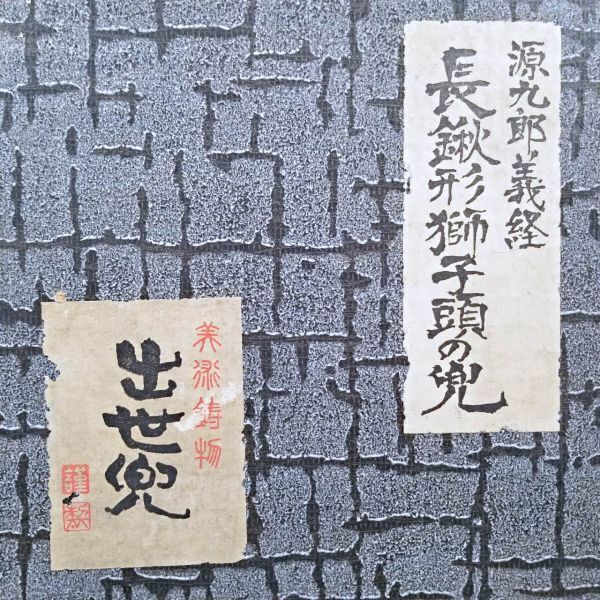 源九郎義経
長鍬形獅子頭の兜
美術鋳物
出世兜
謹製